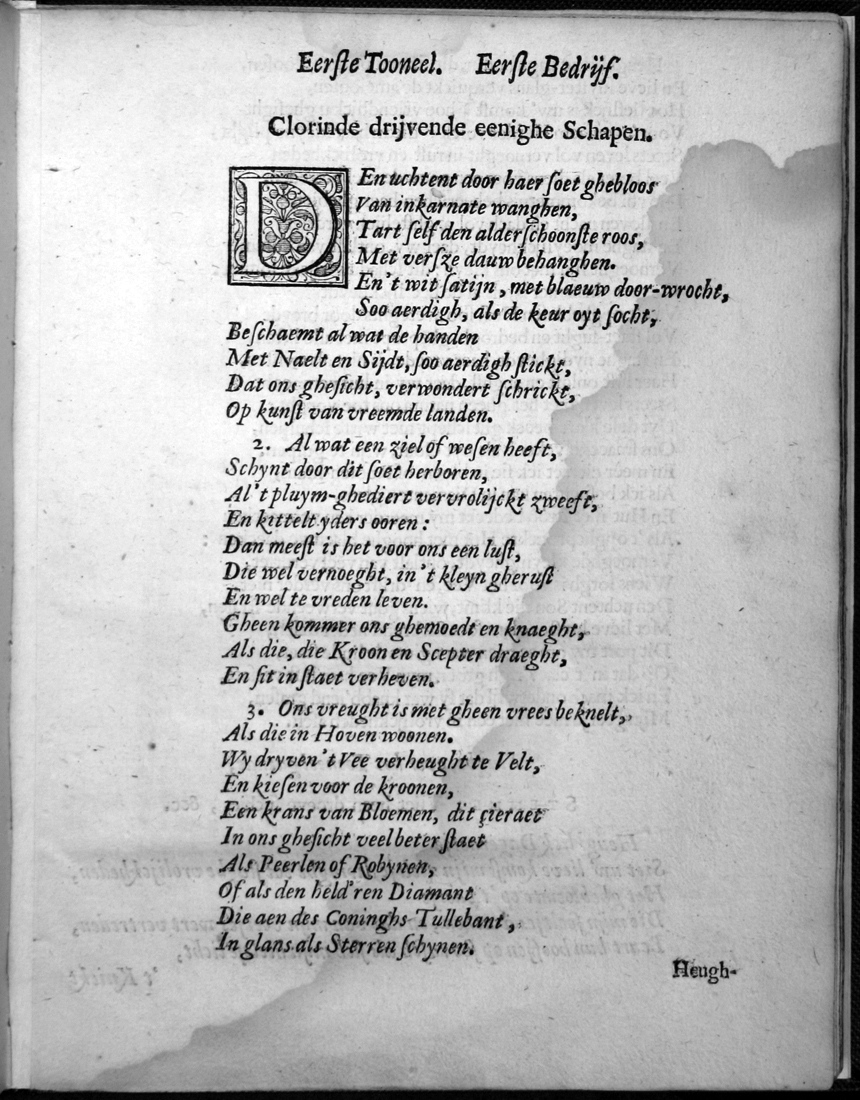 Eerſte Tooneel. Eerſte Bedrijf.
Clorinde drijvende eenighe Schapen.
DEn uchtent door haer ſoet ghebloos
Van inkarnate wanghen,
Tart ſelf den alderſchoonſte roos,
Met verſze dauw behanghen.
En't wit ſatijn, met blaeuw door-wrocht,
Soo aerdigh, als de keur oyt ſocht,
Beſchaemt al wat de handen
Met Naelt en Sijdt, ſoo aerdigh ſtickt,
Dat ons gheſicht, verwondert ſchrickt,
Op kunſt van vreemde landen.
2. Al wat een ziel of weſen heeft,
Schynt door dit ſoet herboren,
Al 't pluym-ghediert vervrolijckt zweeft,
En kittelt yders ooren:
Dan meeſt is het voor ons een luſt,
Die wel vernoeght, in't kleyn gheruſt
En wel te vreden leven.
Gheen kommer ons ghemoedt en knaeght,
Als die, die Kroon en Scepter draeght,
En ſit in ſtaet verheven.
3. Ons vreught is met gheen vrees beknelt,
Als die in Hoven woonen.
Wy dryven't Vee verheught te Velt,
En kieſen voor de kroonen,
Een krans van Bloemen, dit çieraet
In ons gheſicht veel beter ſtaet
Als Peerlen of Robynen,
Of als den held'ren Diamant
Die aen des Coninghs Tullebant,
In glans als Sterren ſchynen.
Heugh-